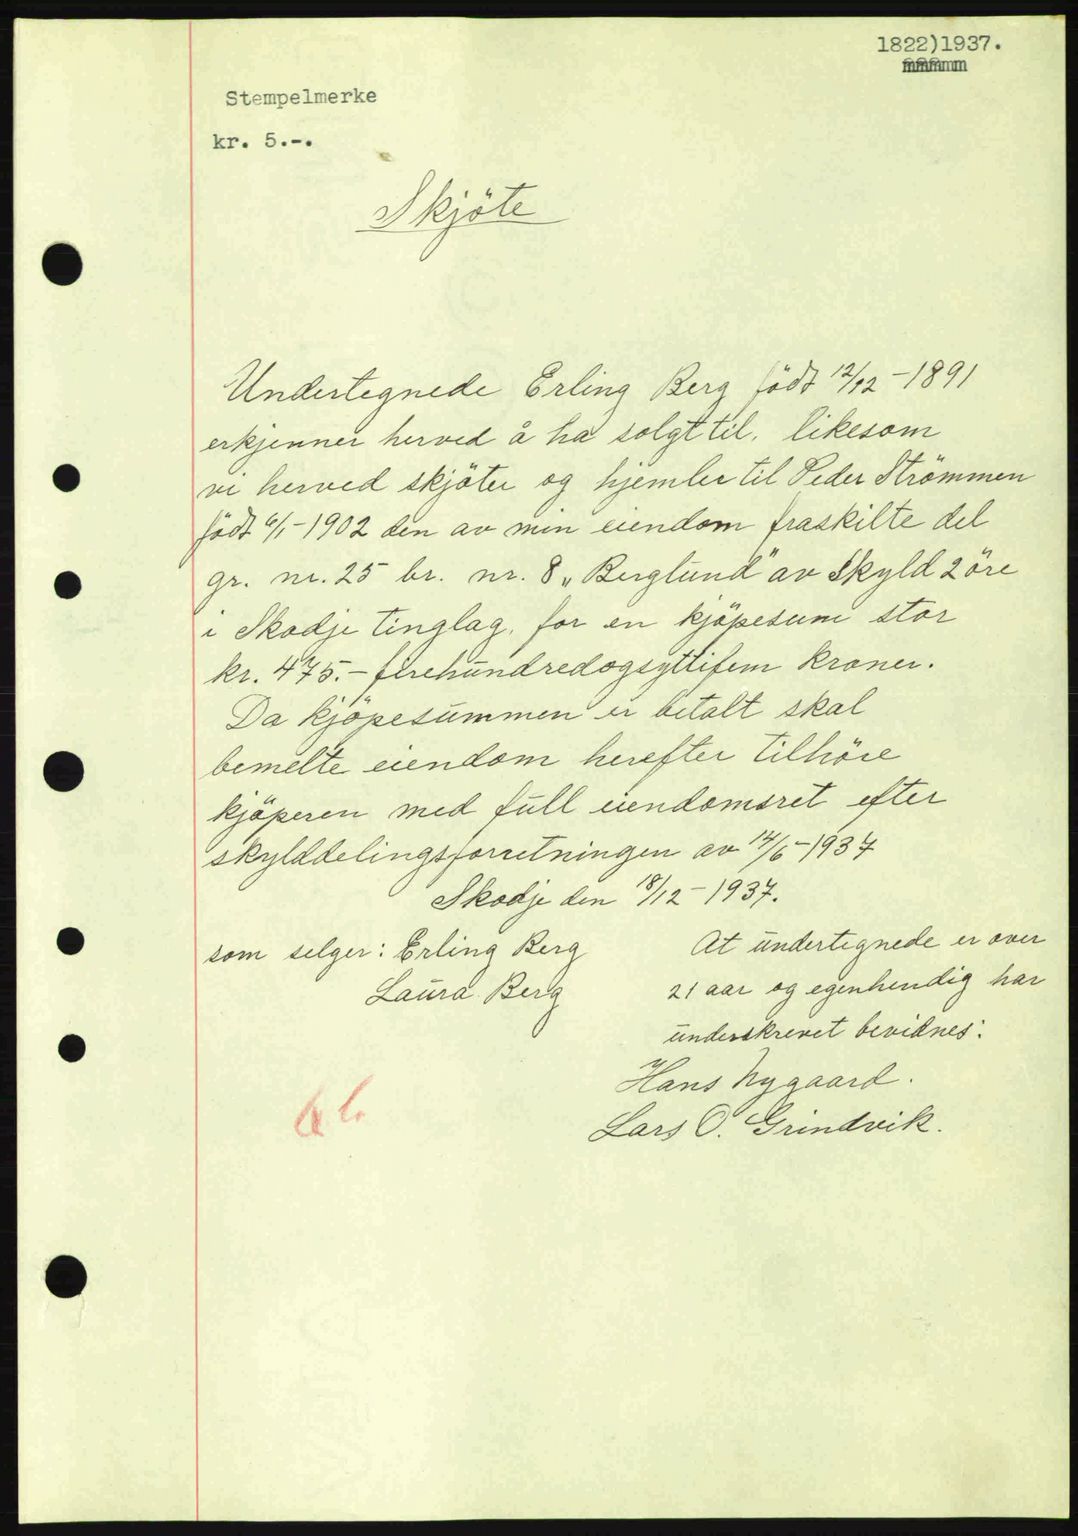 1822)1937.
Stempelmerke
kr. 5.-.
Skjöte
Undertegnede Erling Berg født 12/12 - 1891
erkjenner herved å ha solgt til, likesom
vi herved skjöter og hjemler til Peder Strömmen
födt 6/1 - 1902 den av min eiendom fraskilte del
gr. nr. 25 br. nr. 8 „Berglund" av Skyld 2 öre
i Skodje tinglag, for en kjöpesum stor
kr. 475.- firehundredogsyttifem kroner.
Da kjöpesummen er betalt skal
bemelte eiendom herefter tilhöre
kjöperen med full eiendomsret efter
skylddelingsforretningen av 14/6 - 1937
Skodje den 18/12 - 1937.
som selger: Erling Berg
Laura Berg
At undertegnede er over
21 aar og egenhendig har
underskrevet bevidnes:
Hans Nygaard.
Lars O. Grindvik.